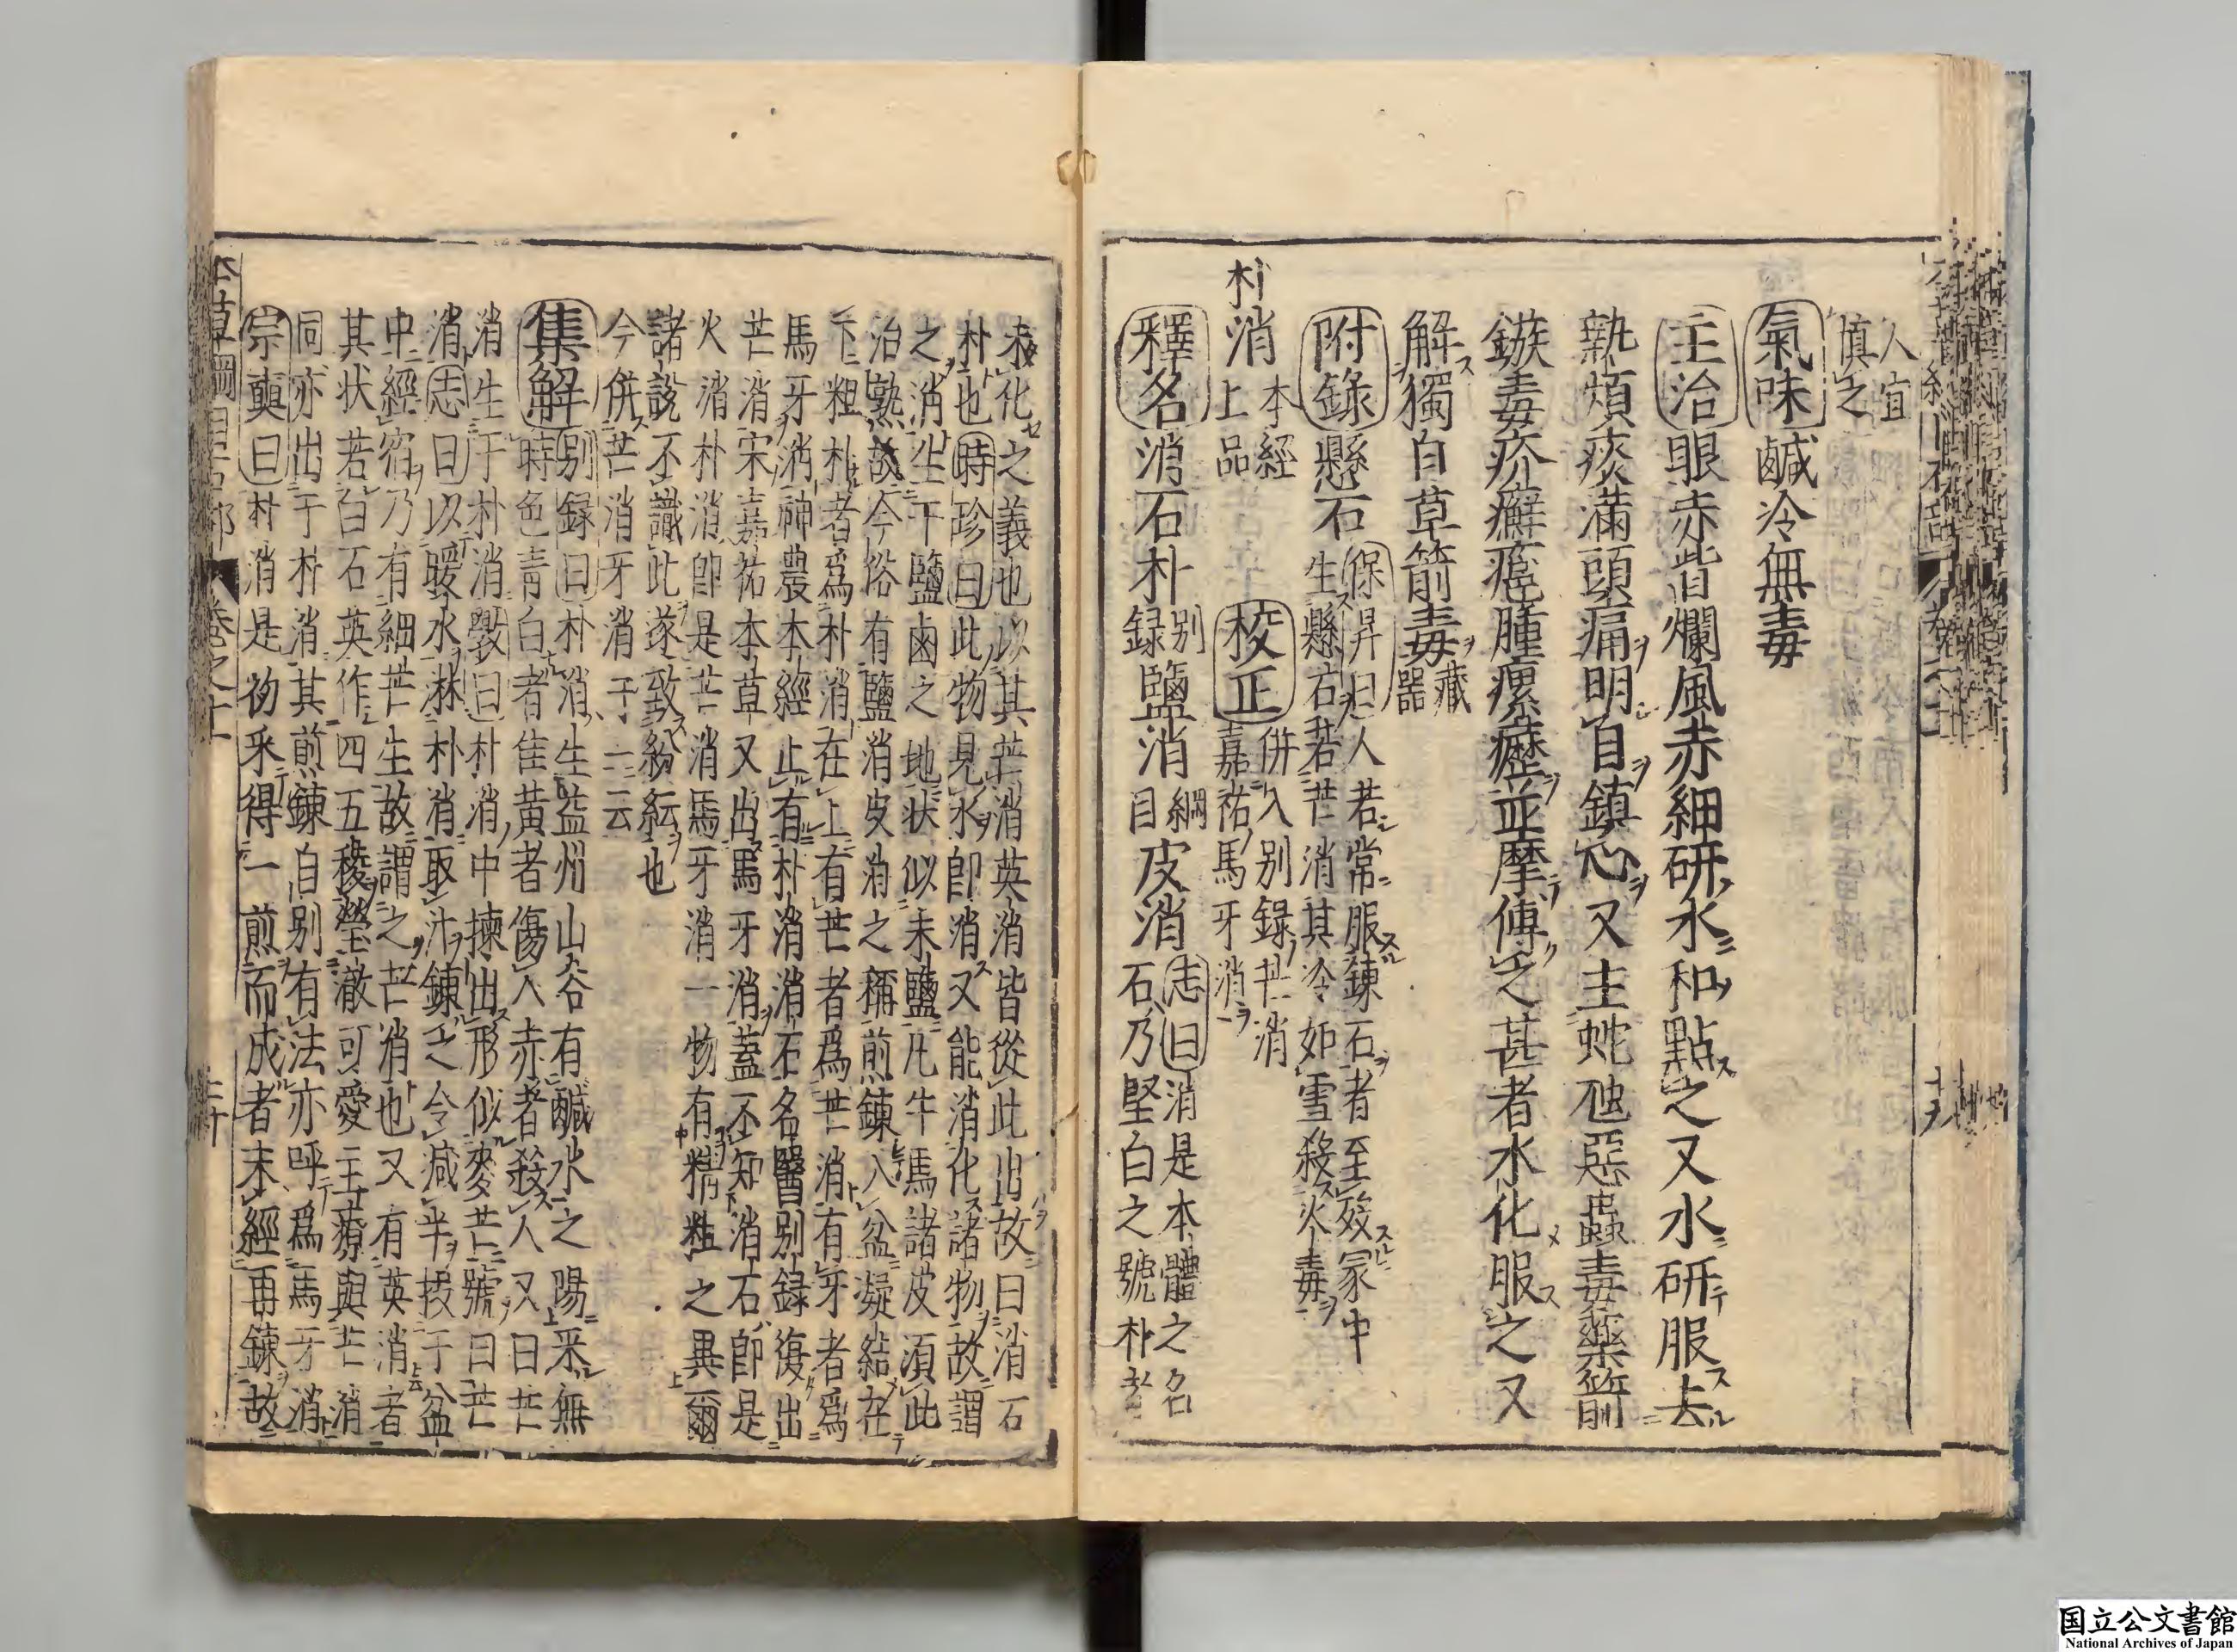 人宜
慎之
氣味鹹冷無毒
主治眼赤眥爛風赤細研水和點之又水研服去
熱煩痰滿頭痛明目鎮心又主蛇虺惡蟲毒藥箭
鏃毒疥癬瘡腫瘰癧並摩傅之甚者水化服之又
解獨自草箭毒藏器
附錄懸石保昇曰人若常服鍊石者至歿冢中
生懸石若芒消其冷如雪殺火毒
朴消本經上品校正併入別錄芒消
嘉祐馬牙消
釋名消石朴別録鹽消綱目皮消志曰消是本體之名
石乃堅白之號朴者
未化之義也以其芒消英消皆從此出故曰消石
朴也時珍曰此物見水即消又能消化諸物故謂
之消生于鹽鹵之地状似末鹽凡牛馬諸皮須此
治熟故今俗有鹽消皮消之稱煎鍊入盆凝結在
下粗朴者爲朴消在上有芒者爲芒消有牙者爲
馬牙消神農本經止有朴消消石名醫別録復出
芒消宋嘉祐本草又出馬牙消蓋不知消石即是
火消朴消即是芒消馬牙消一物有精粗之異爾
諸說不識此遂致紛紜也
今併芒消牙消于一云
集解別録曰朴消生益州山谷有鹹水之陽采無
時色青白者佳黃者傷人赤者殺人又曰芒
消生于朴消斅曰朴消中揀出形似麥芒號曰芒
消志曰以暖水淋朴消取汁鍊之令減半投于盆
中經宿乃有細芒生故謂之芒消也又有英消者
其状若白石英作四五稜瑩澈可愛主療與芒消
同亦出于朴消其煎鍊自別有法亦呼爲馬牙消
宗奭曰朴消是初采得一煎而成者未經再鍊故
本草綱目石部 卷之十一 二十
国立公文書館
National Archives of Japan